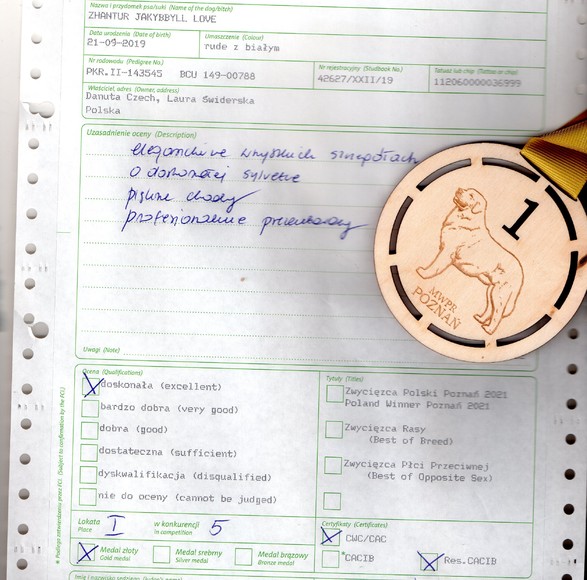 Nazwa i przydomek psa/suki (Name of the dog/bitch)
ZHANTUR JAKYBBYLL LOVE
Data urodzenia (Date of birth) Umaszczenie (Colour)
21-09-2019 rude z białym
Nr rodowodu (Pedigree No.) Nr rejestracyjny (Studbook No.) Tatuaż lub chip (Tattoo or chip)
PKR.II-143545 BCU 149-00788 42627/XXII/19 112060000036999
Właściciel, adres (Owner, address)
Danuta Czech, Laura Świderska
Polska
Uzasadnienie oceny (Description)
o doskonałej sylwetce
piękne chody
Uwagi (Note)
1
MWPR
POZNAŃ
Ocena (Qualifications) Tytuły (Titles)
doskonała (excellent)
bardzo dobra (very good)
dobra (good)
dostateczna (sufficient)
dyskwalifikacja (disqualified)
nie do oceny (cannot be judged)
Zwycięzca Polski Poznań 2021
Poland Winner Poznań 2021
Zwycięzca Rasy
(Best of Breed)
Zwycięzca Płci Przeciwnej
(Best of Opposite Sex)
Lokata I w konkurencji 5
Place in competition
Certyfikaty (Certificates)
CWC/CAC
*CACIB Res.CACIB
Medal złoty Medal srebrny Medal brązowy
Gold medal Silver medal Bronze medal
* Podlega zatwierdzeniu przez FCI. (Subject to confirmation by the FCI.)